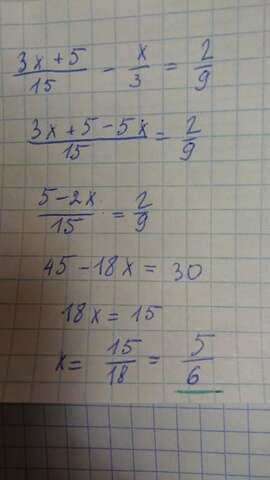 (3x+5)/15 - x/3 = 2/9
(3x+5-5x)/15 = 2/9
(5-2x)/15 = 2/9
45-18x = 30
18x = 15
x = 15/18 = 5/6